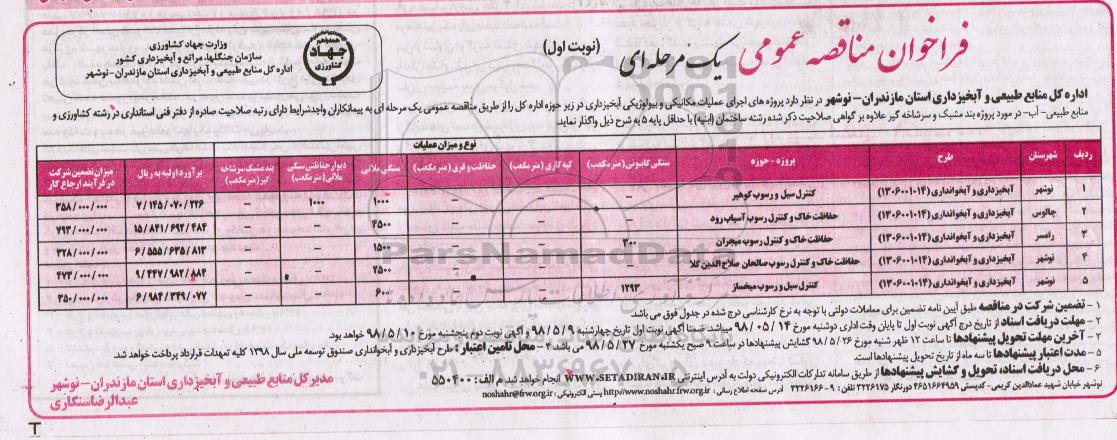 فراخوان مناقصه عمومی یک مرحله ای (نوبت اول)
وزارت جهاد کشاورزی
سازمان جنگلها، مراتع و آبخیزداری کشور
اداره کل منابع طبیعی و آبخیزداری استان مازندران- نوشهر
همه باهم جهاد کشاورزی
اداره کل منابع طبیعی و آبخیزداری استان مازندران- نوشهر در نظر دارد پروژه های اجرای عملیات مکانیکی و بیولوژیکی آبخیزداری در زیر حوزه اداره کل را از طریق مناقصه عمومی یک مرحله ای به پیمانکاران واجدشرایط دارای رتبه صلاحیت صادره از دفتر فنی استانداری در رشته کشاورزی و
منابع طبیعی- آب- در مورد پروژه بند مشبک و سرشاخه گیر علاوه بر گواهی صلاحیت ذکر شده رشته ساختمان (ابنیه) با حداقل پایه ۵ به شرح ذیل واگذار نماید.
ردیف شهرستان طرح پروژه - حوزه نوع و میزان عملیات برآورد اولیه به ریال میزان تضمین شرکت در فرآیند ارجاع کار
سنگی گابیونی (متر مکعب) کپه کاری (متر مکعب) حفاظت و قرق (متر مکعب) سنگی ملاتی دیوار حفاظتی سنگی ملاتی (متر مکعب) بند مشبک سرشاخه گیر (متر مکعب)
۱ نوشهر آبخیزداری و آبخوانداری (۱۳۰۶۰۰۱۰۱۴) کنترل سیل و رسوب کوهپر - - - ۱۰۰۰ ۱۰۰۰ - ۷/۱۴۵/۰۷۰/۲۲۶ ۳۵۸/۰۰۰/۰۰۰
۲ چالوس آبخیزداری و آبخوانداری (۱۳۰۶۰۰۱۰۱۴) حفاظت خاک و کنترل رسوب آسیاب رود - - - ۴۵۰۰ - - ۱۵/۸۴۱/۶۹۲/۴۸۴ ۷۹۳/۰۰۰/۰۰۰
۳ رامسر آبخیزداری و آبخوانداری (۱۳۰۶۰۰۱۰۱۴) حفاظت خاک و کنترل رسوب میجران ۳۰۰ - - ۱۵۰۰ - - ۶/۵۵۵/۶۳۵/۸۱۳ ۳۲۸/۰۰۰/۰۰۰
۴ نوشهر آبخیزداری و آبخوانداری (۱۳۰۶۰۰۱۰۱۴) حفاظت خاک و کنترل رسوب صالحان صلاح الدین کلا - - - ۲۵۰۰ - - ۹/۴۴۷/۹۸۲/۸۸۴ ۴۷۳/۰۰۰/۰۰۰
۵ نوشهر آبخیزداری و آبخوانداری (۱۳۰۶۰۰۱۰۱۴) کنترل سیل و رسوب میخساز ۱۲۹۳ - - ۶۰۰ - - ۶/۹۸۴/۳۴۹/۰۷۷ ۳۵۰/۰۰۰/۰۰۰
۱ - تضمین شرکت در مناقصه طبق آیین نامه تضمین برای معاملات دولتی با توجه به نرخ کارشناسی درج شده در جدول فوق می باشد.
۲ - مهلت دریافت اسناد از تاریخ درج آگهی نوبت اول تا پایان وقت اداری دوشنبه مورخ ۹۸/۰۵/۱۴ میباشد ضمنا آگهی نوبت اول تاریخ چهارشنبه ۹۸/۵/۹ و آگهی نوبت دوم پنجشنبه مورخ ۹۸/۵/۱۰ خواهد بود.
۳ - آخرین مهلت تحویل پیشنهادها تا ساعت ۱۲ ظهر شنبه مورخ ۹۸/۵/۲۶ گشایش پیشنهادها در ساعت ۹ صبح یکشنبه مورخ ۹۸/۵/۲۷ می باشد ۴ - محل تامین اعتبار: طرح آبخیزداری و آبخوانداری صندوق توسعه ملی سال ۱۳۹۸ کلیه تعهدات قرارداد پرداخت خواهد شد.
۵ - مدت اعتبار پیشنهادها تا سه ماه از تاریخ تحویل پیشنهادها است.
۶ - محل دریافت اسناد، تحویل و گشایش پیشنهادها از طریق سامانه تدارکات الکترونیکی دولت به آدرس اینترنتی WWW.SETADIRAN.IR انجام خواهد شد. م الف: ۵۵۰۴۰۰
نوشهر خیابان شهید عمادالدین کریمی- کدپستی ۴۶۵۱۶۶۴۹۵۹ دورنگار ۳۲۲۶۱۷۵ تلفن: ۹ - ۳۲۲۶۱۶۶ آدرس صفحه اطلاع رسانی: http//www.noshahr.frw.org.ir پستی الکترونیکی: noshahr@frw.org.ir
مدیر کل منابع طبیعی و آبخیزداری استان مازندران- نوشهر
عبدالرضا سنگاری
ParsNamadData
۰۲۱-۸۸۳۴۹۶۷۰-۵
T